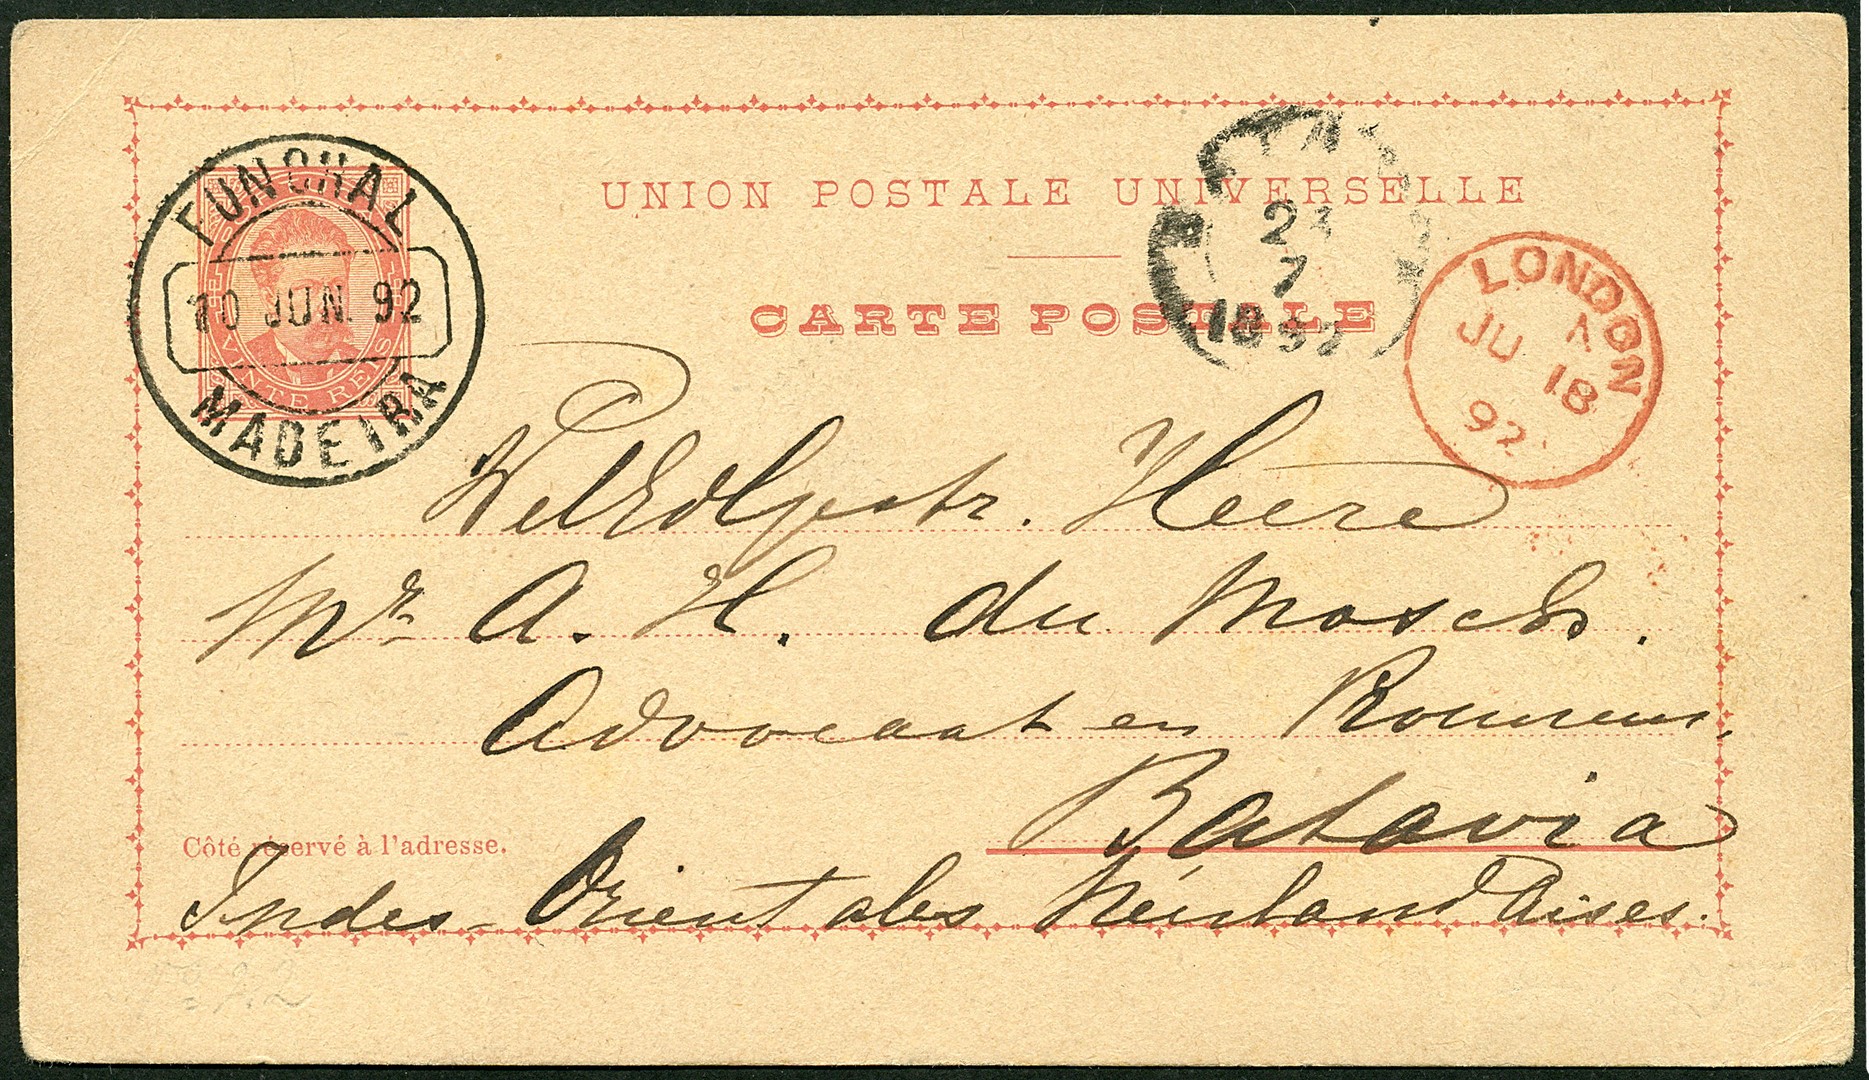 UNION POSTALE UNIVERSELLE
CARTE POSTALE
FUNCHAL
10 JUN. 92
MADEIRA
VINTE REIS
7
1892
LONDON
A
JU 18
92
WelEdlgestr. Heere
Mr A. H. du Mosch.
Advocaat en
Batavia
Côté réservé à l'adresse.
Indes Orientales Néerlandaises.